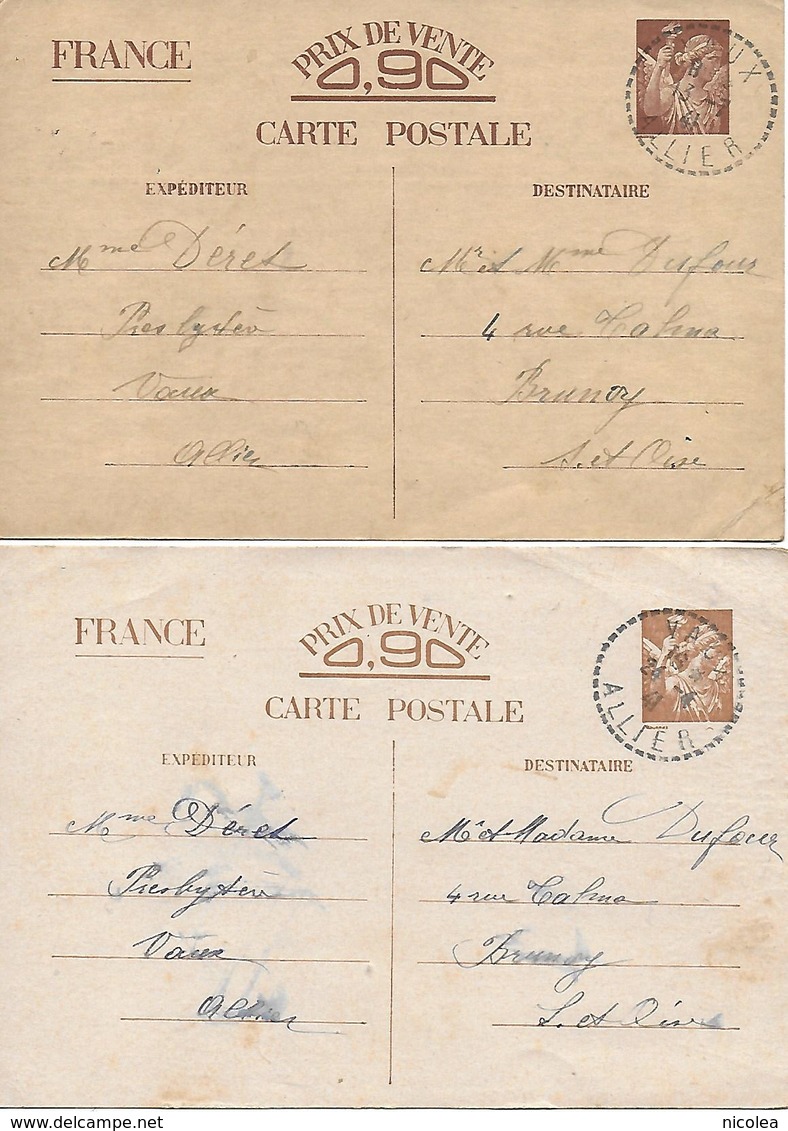 FRANCE
PRIX DE VENTE
0,90
CARTE POSTALE
VAUX
ALLIER
EXPÉDITEUR
Mme Déret
Presbytère
Vaux
Allier
DESTINATAIRE
Mr et Mme Dufour
4 rue Talma
Brunoy
S. et Oise
FRANCE
PRIX DE VENTE
0,90
CARTE POSTALE
VAUX
ALLIER
EXPÉDITEUR
Mme Déret
Presbytère
Vaux
Allier
DESTINATAIRE
Mr et Madame Dufour
4 rue Talma
Brunoy
S. et Oise
delcampe.net
nicolea